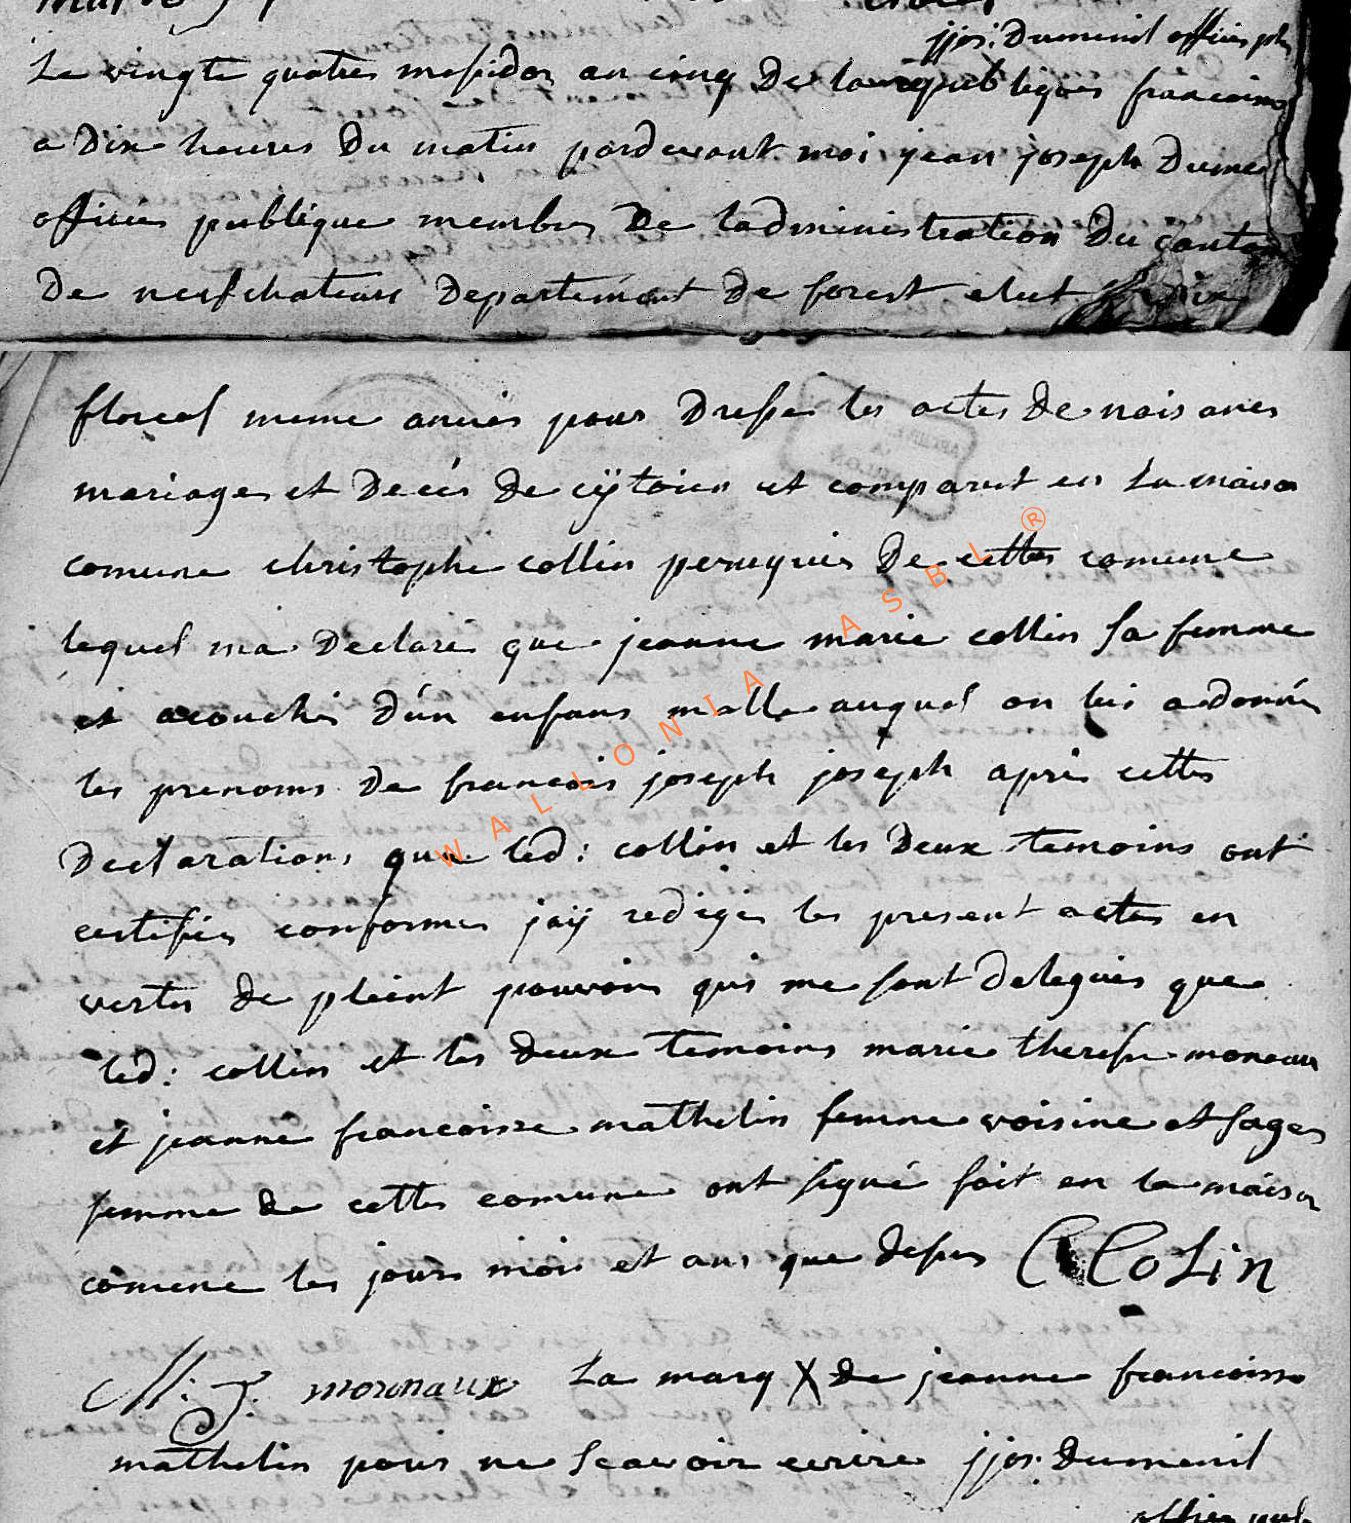 jjos: Dumenil officier pb
Le vingte quatres mesidor an cinq De la republiques francoises
a Dix heures Du matin pardevant moi jean joseph Dume
officier publique membres De Ladministration Du canton
De neufchateau Departement De forest elut dix
floreal meme anneés pour Dresser les actes De naisances
mariages et Decés De cÿtoien et comparut en La maison
comune christophe collin peruquier De cettes comune
lequel ma Declaré que jeanne marie collin sa femme
et acouchés D'un enfans malle auquel on lui a donnés
les prenoms De francois joseph joseph aprés cettes
Declarations que led: collin et les Deux temoins ont
certifiés conformes jaÿ redigés les present actes en
vertus de pleint pouvoirs qui me sont Deleguéis que
led: collin et les deux temoins marie therese moneau
et jeanne francoisse mathelin femme voisine et sages
femme de cettes comune ont signé fait en la maison
comune les jours mois et ans que desus C Colin
M: T. mornaux La marq X de jeanne francoisse
mathelin pour ne scavoir ecrire jjos: Dumenil
officier pub
WALLONIA ASBL ®